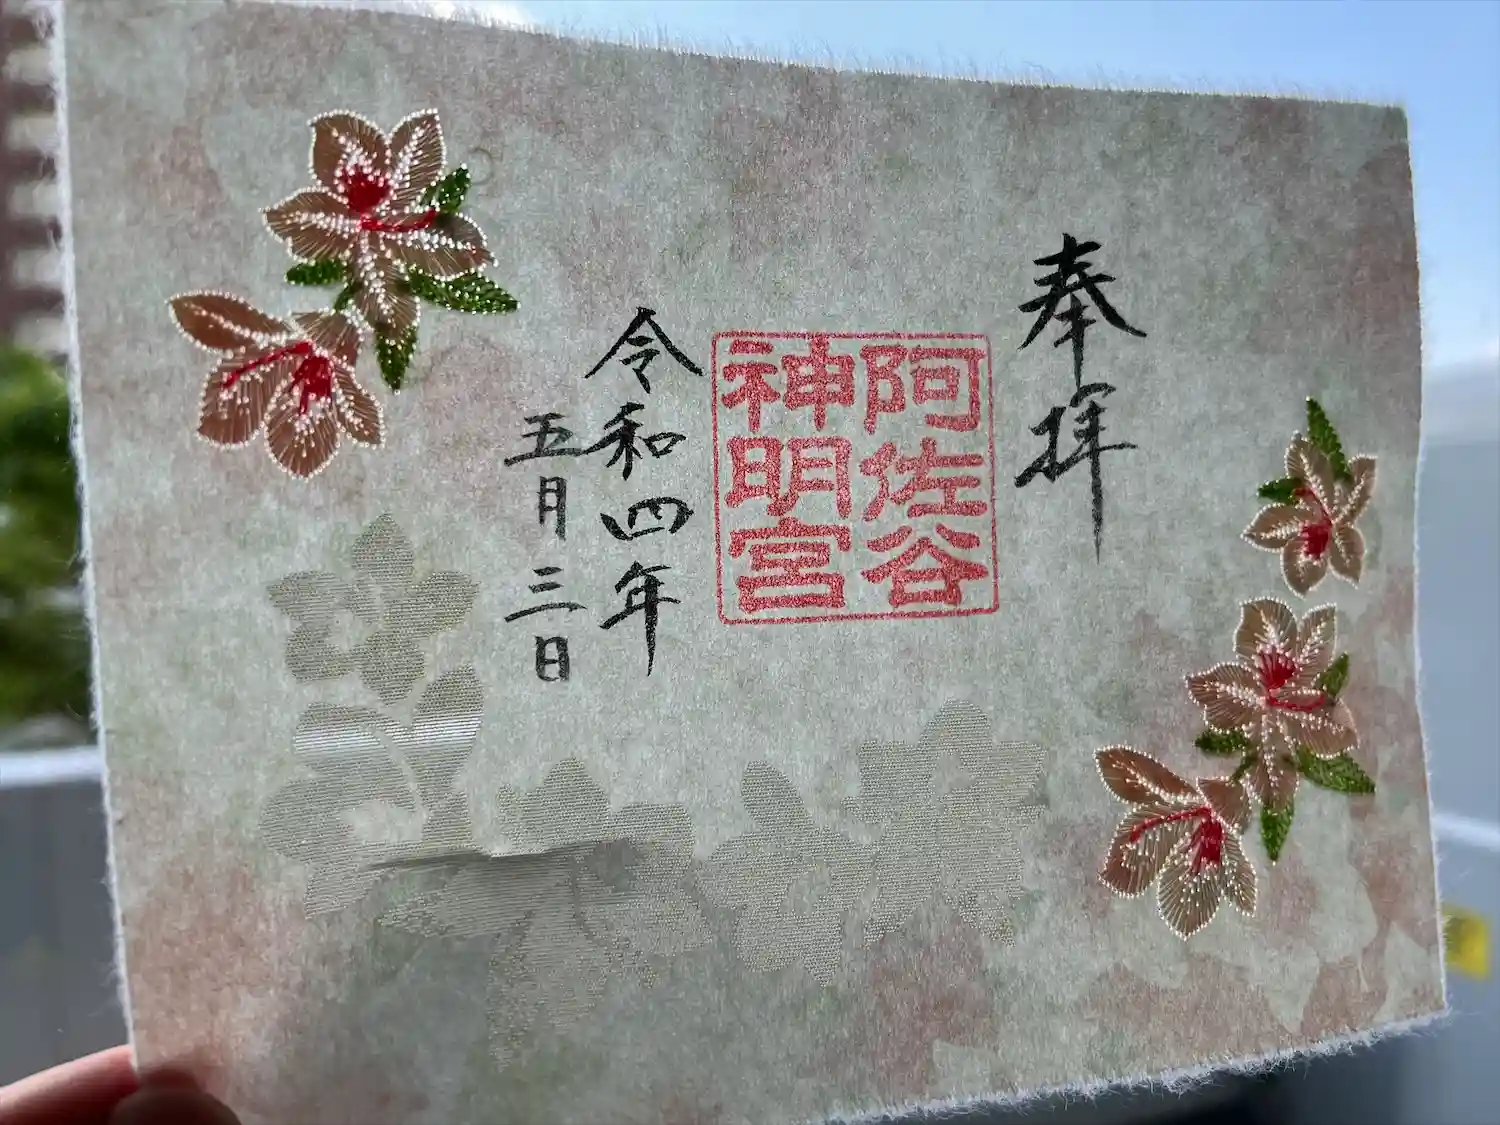 奉拝
阿佐谷
神明宮
令和四年
五月三日